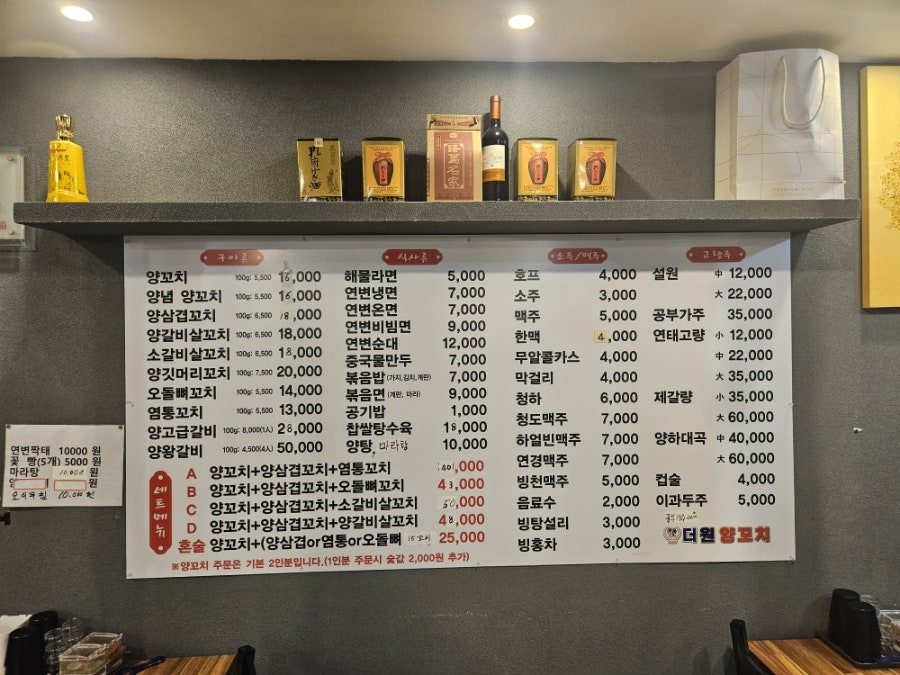 구이류
양꼬치 100g: 5,500 15,000
양념 양꼬치 100g: 5,500 16,000
양삼겹꼬치 100g: 6,500 18,000
양갈비살꼬치 100g: 6,500 18,000
소갈비살꼬치 100g: 6,500 18,000
양깃머리꼬치 100g: 7,500 20,000
오돌뼈꼬치 100g: 5,500 14,000
염통꼬치 100g: 5,500 13,000
양고급갈비 100g: 8,000(1人) 28,000
양왕갈비 100g: 4,500(4人) 50,000
식사류
해물라면 5,000
연변냉면 7,000
연변온면 7,000
연변비빔면 9,000
연변순대 12,000
중국물만두 7,000
볶음밥(가지,김치,계란) 7,000
볶음면(계란, 마라) 9,000
공기밥 1,000
찹쌀탕수육 18,000
양탕, 마라탕 10,000
소주/맥주
호프 4,000
소주 3,000
맥주 5,000
한맥 4,000
무알콜카스 4,000
막걸리 4,000
청하 6,000
청도맥주 7,000
하얼빈맥주 7,000
연경맥주 7,000
빙천맥주 5,000
음료수 2,000
빙탕설리 3,000
빙홍차 3,000
고량주
설원 中 12,000
大 22,000
공부가주 35,000
연태고량 小 12,000
中 22,000
大 35,000
제갈량 小 35,000
大 60,000
양하대곡 中 40,000
大 60,000
컵술 4,000
이과두주 5,000
더원 양꼬치
세트메뉴
A 양꼬치+양삼겹꼬치+염통꼬치 40,000
B 양꼬치+양삼겹꼬치+오돌뼈꼬치 43,000
C 양꼬치+양삼겹꼬치+소갈비살꼬치 50,000
D 양꼬치+양삼겹꼬치+양갈비살꼬치 48,000
혼술 양꼬치+(양삼겹or염통or오돌뼈 15꼬치 25,000
※양꼬치 주문은 기본 2인분입니다.(1인분 주문시 숯값 2,000원 추가)
연변짝태 10000 원
꽃 빵(5개) 5000 원
마라탕 10,000 원
원
10,000원
諸葛名家